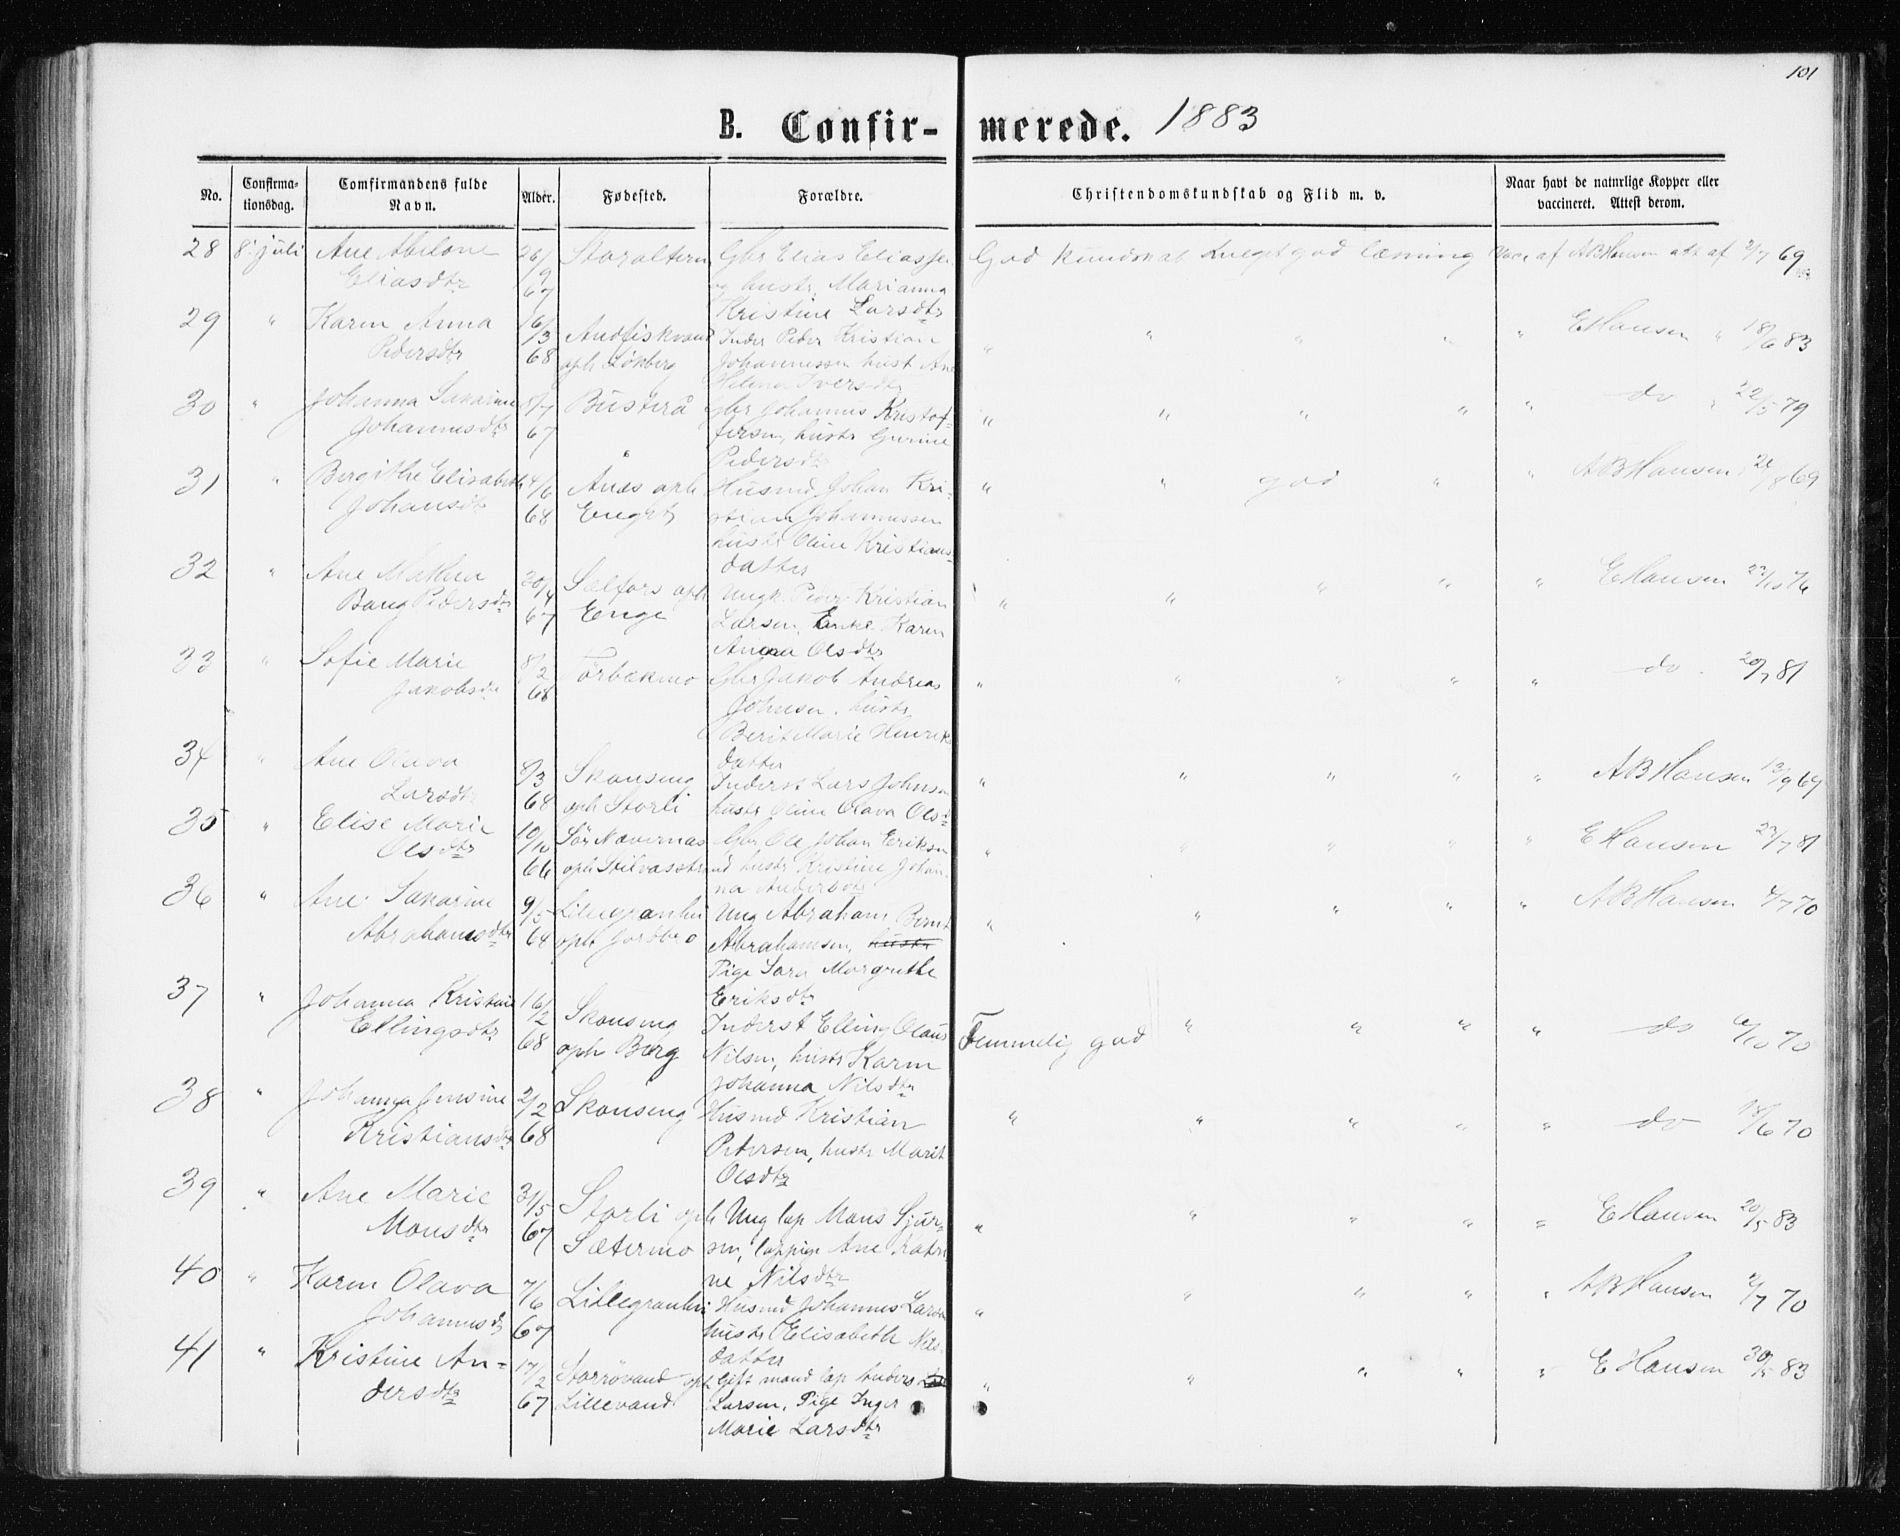 101
B. Confir- merede. 1883
No. Confirma-tionsdag. Comfirmandens fulde Navn. Alder. Fødested. Forældre. Christendomskundskab og Flid m. v. Naar havt de naturlige Kopper eller vaccineret. Attest derom.
28 8. juli Ane Abelone Eliasdtr 26/9 67 Storaltern Gbr Elias Eliassen og hustr. Marianna Kristine Larsdtr God kundskab meget god læsning Vacc af AB Hansen att af 2/7 69
29 " Karen Anna Pedersdtr 16/3 68 Andfiskvand oph Løkberg Inder Peder Kristian Johannessen hust Ane Helena Iversdtr " " " " " E Hansen " 18/6 83
30 " Johanna Sakarine Johannesdtr 8/7 67 Busteraa Gbr Johannes Kristoffersen, hustr Gurine Pedersdtr " " " " " do " 22/5 79
31 " Bergithe Elisabeth Johansdtr 4/6 68 Anæs oph Enget Husmd Johan Kristian Johannessen hustr Oline Kristiansdatter " " god " " AB Hansen 21/8 69
32 " Ane Mathea Bang Pedersdtr 20/4 67 Selfors oph Enge Ungk. Peder Kristian Larsen, Enke Karen Anna Olsdtr " " " " " E Hansen 23/10 76
33 " Sofie Marie Jakobsdtr 8/2 68 Tørbækmo Gbr Jakob Andreas Johnsen, hustr Berit Marie Henriksdatter " " " " " do. 20/7 81
34 " Ane Olava Larsdtr 8/3 68 Skonseng oph Storli Inderst Lars Johnsen hustr Oline Olava Olsdtr " " " " " AB Hansen 13/9 69
35 " Elise Marie Olsdtr 10/10 66 Sør Nævernæs oph Stilvasstrand Gbr. Ole Johan Eriksen hustr Kristine Johanna Andersdtr " " " " " E Hansen 23/7 81
36 " Ane Sakarine Abrahamsdtr 9/5 64 Lillegranhei oph Jordbro Ung Abraham Bernt Abrahamsen, hustr Pige Sara Margrethe Eriksdtr " " " " " AB Hansen 4/7 70
37 " Johanna Kristine Ellingsdtr 16/2 68 Skonseng oph Berg Inderst Elling Olaus Nilsen, hustr Karen Johanna Nilsdtr Temmelig god " " " " do 6/10 70
38 " Johanna Jensine Kristiansdtr 2/2 68 Skonseng Husmd Kristian Pedersen, hustr Marit Olsdtr " " " " " do 18/6 70
39 " Ane Marie Monsdtr 31/5 67 Storli oph Sætermo Ung lap Mons Sjursen, lappige Ane Katrine Nilsdtr " " " " " E Hansen 20/5 83
40 " Karen Olava Johannesdtr 7/6 67 Lillegranhei Husmd Johannes Larsen hustr Elisabeth Nilsdatter " " " " " AB Hansen 2/7 70
41 " Kristine Andersdtr 17/2 67 Storrøvand oph Lillevand Gift mand lap Anders Larsen, Pige Inger Marie Larsdtr " " " " " E Hansen 30/5 83